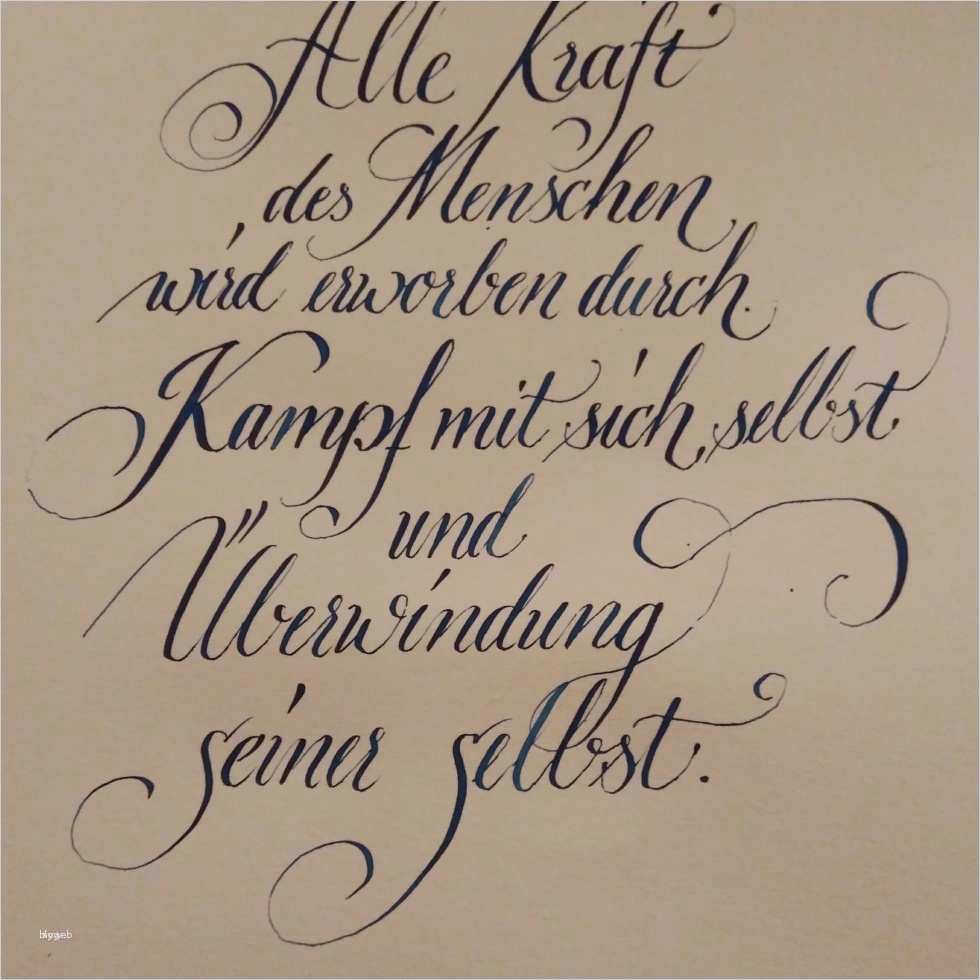 Alle Kraft
des Menschen
wird erworben durch
Kampf mit sich selbst
und
Überwindung
seiner selbst.